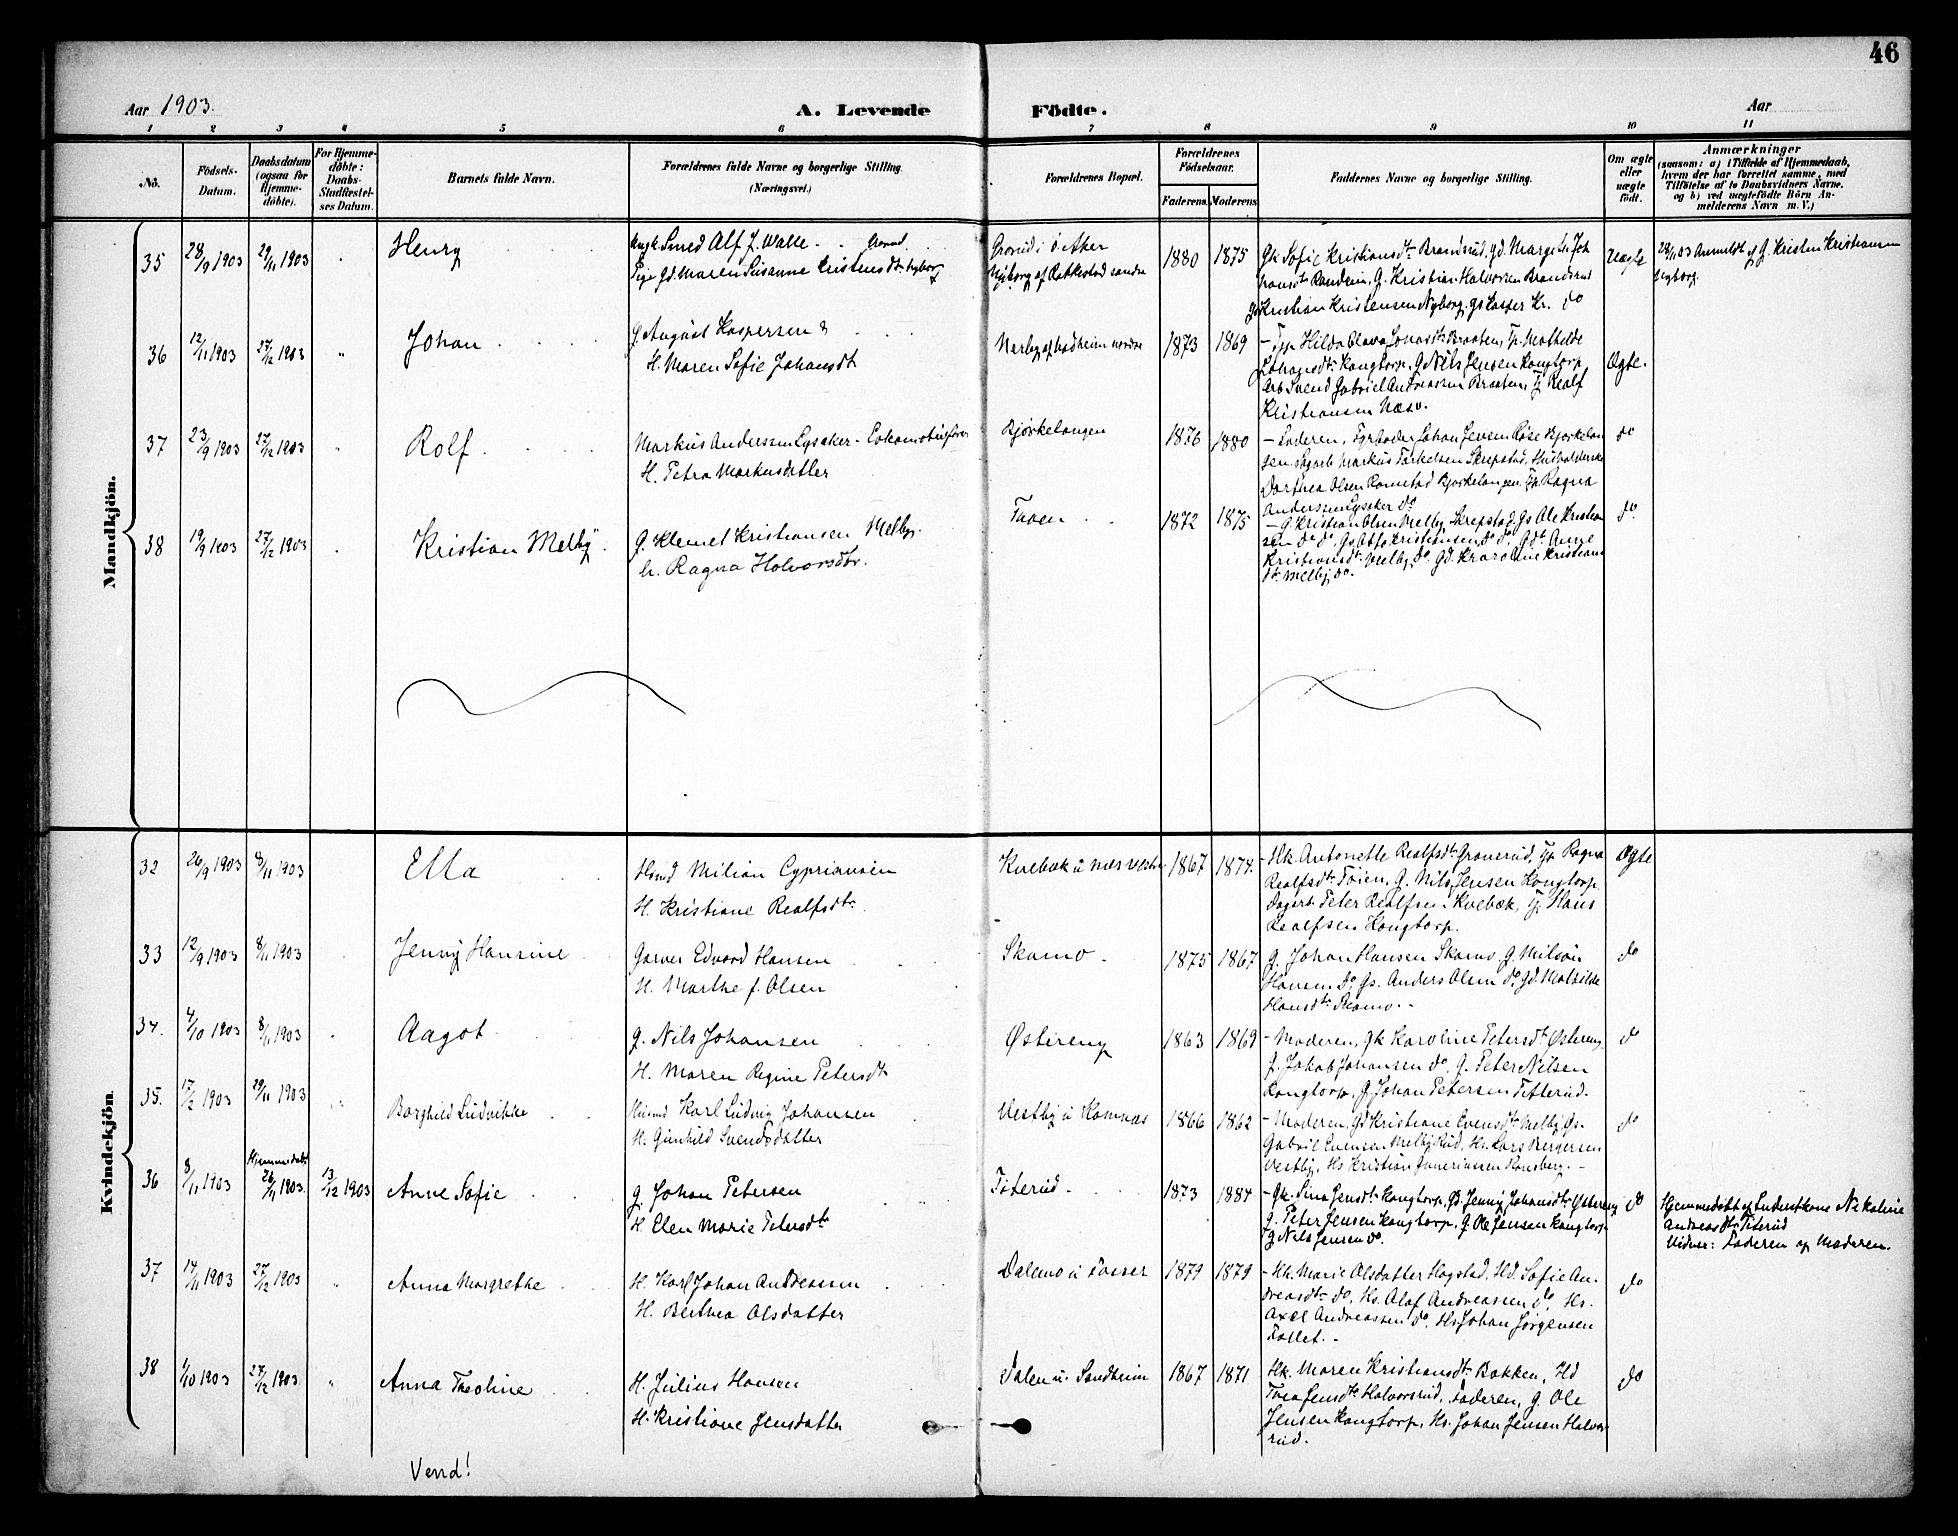 46
Aar 1903.
A. Levende Födte.
Aar
1 2 3 4 5 6 7 8 9 10 11
No.
Födsels-
Datum.
Daabsdatum
(ogsaa for
Hjemme-
döbte).
For Hjemme-
döbte:
Daabs-
Stadfæstel-
ses Datum.
Barnets fulde Navn.
Forældrenes fulde Navne og borgerlige Stilling.
(Næringsvei.)
Forældrenes Bopæl.
Forældrenes
Födselsaar.
Faderens. Moderens.
Faddernes Navne og borgerlige Stilling.
Om ægte
eller
uægte
födt.
Anmærkninger
(saasom: a) i Tilfælde af Hjemmedaab,
hvem der har forrettet samme, med
Tilföielse af to Daabsvidners Navne,
og b) ved uægtefödte Börn An-
melderens Navn m. V.)
Mandkjön.
35 28/9 1903 29/11 1903 Henry
Ungk Smed Alf J. Walle
Pige Gd. Maren Susanne Kristensdtr Nyborg
Grorud i ö. Aker
Nyborg af Rakkestad søndre
1880 1875
Gk Sofie Kristiansdtr Brandsrud, Gd. Margit Joh
hansdtr Randem, G. Kristian Halvorsen Brandsrud
G. Kristian Kristensen Nyborg, Gs Kasper Kr. do
Uægte
28/11 03 Anmeldt af G. Kristen Kristiansen
Nyborg.
36 12/11 1903 27/12 1903 " Johan
G. August Kaspersen &
H. Maren Sofie Johansdtr
1873 1869
Johansdtr Kongtorp, G. Nils Jensen Kongtorp
Gabriel Andreassen Braaten, Realf
Kristiansen Næsv.
Ægte.
37 23/9 1903 27/12 1903 " Rolf
Markus Anderssen Lysaker - Lokomotivfører
H. Petra Markusdatter
Bjørkelangen
1876 1880
- Faderen, Johan Jensen Bjørkelan
gen, Markus Torkelsen Skrepstad, Husholderske
Dorthea Olsen Ramstad Bjørkelangen, Ragna
Anderssen Lysaker do
do
38 19/9 1903 27/12 1903 Kristian Melby
G. Klemet Kristiansen Melby
H. Ragna Halvorsdtr.
1872 1875
- G. Kristian Olsen Melby, Skrepstad, Gs Ole Kristian
sen do do, Gs Otto Kristiansen do do, Gdt. Anne
Kristiansdtr Melby do, Gd. Karoline Kristians
dtr. Melby do.
do.
Kvindekjön.
32 26/9 1903 8/11 1903 Ella
Husmd Milian Cypriansen
H. Kristiane Realfsdtr.
Kvebæk u. Næs vestre
1867 1874.
- Hk. Antonette Realfsdtr Gronerud, Ragna
Realfsdtr Toien, G. Nils Jensen Kongtorp,
Dagarb. Peter Realfsen Kvebæk, Hans
Realfsen Kongtorp.
Ægte
33 12/9 1903 8/11 1903 Jenny Hansine
Garver Edvard Hansen
H. Marthe f. Olsen
Skamo
1875 1867
G. Johan Hansen Skamo, G. Milian
Hansen do, Gs. Anders Olsen do, Gd. Mathilde
Hansdtr Skamo.
do
34. 4/10 1903 8/11 1903 Aagot
G. Nils Johansen
H. Maren Regine Petersdtr
Østereng
1863 1869
- Moderen, Gk Karoline Petersdtr Østereng,
G. Jakob Johansen do, G. Peter Nilsen
Kongtorp, G. Johan Petersen Titterud.
do
35. 17/2 1903 29/11 1903 " Borghild Ludvikke
Husmd Karl Ludvig Johansen
H. Gunhild Svendsdatter
Vestby u. Komnæs
1866 1862
- Moderen, Gd Kristiane Evensdtr Melby, Gs.
Gabriel Evensen Melby, Hs. Lars Bergersen
Vestby, Hs Kristian Ransberg. -
do
36 8/11 1903 Hjemmedøbt 26/11 1903. 13/12 1903 Anne Sofie
G. Johan Petersen
H. Elen Marie Petersdtr
Titerud
1873 1884
- Gk. Lina Jensdtr Kongtorp, Gd. Jenny Johansdtr Østereng
G. Peter Jensen Kongtorp, G. Ole Jensen Kongtorp
G. Nils Jensen do.
do
Hjemmedøbt af Inderstkone Nikoline
Andreasdtr Titerud
Vidner: Faderen og Moderen.
37 14/11 1903 27/12 1903 " Anna Margrethe
H. Karl Johan Andreassen
H. Berthea Olsdatter
Dalemo u. Fosser
1879 1879
- Hk. Marie Olsdatter Hogstad, Hd. Sofie An-
dreasdtr do, Hs. Olaf Andreassen do, Hs.
Axel Andreassen do, Hs Johan Jørgensen
Follet. -
do
38 1/10 1903 27/12 1903 " Anna Theoline
H. Julius Hansen
H. Kristiane Jensdatter
Dalen u. Sandheim
1867 1871
Hk. Maren Kristiansdtr Bakken, Hd
Thea Jensdtr Halvorsrud, Faderen, G. Ole
Jensen Kongtorp, Hs. Johan Jensen Halvors
rud.
do
Vend!